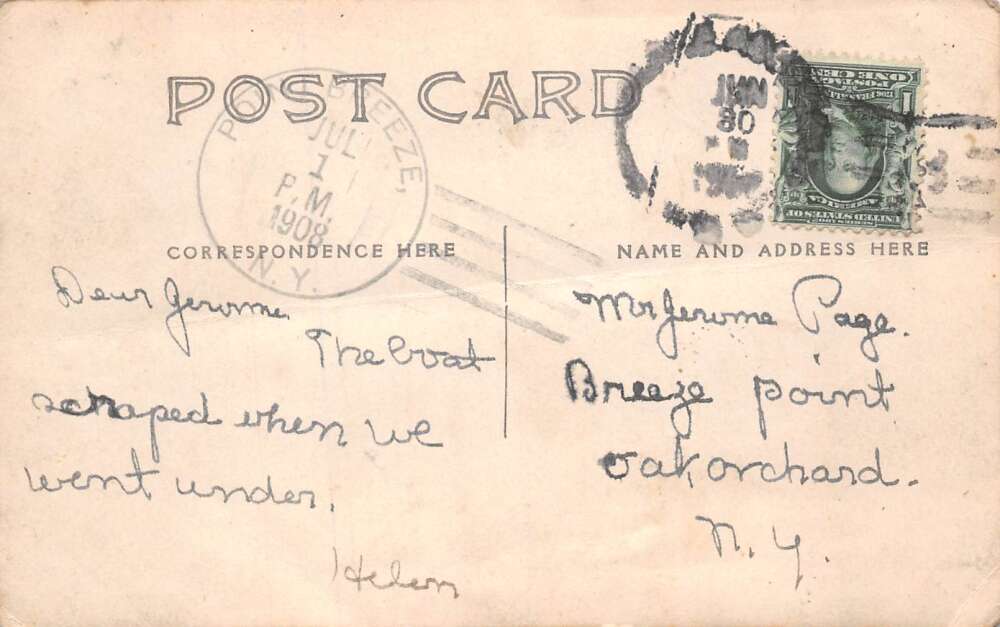 POST CARD
BREEZE,
JUL
1
P.M.
1908
N.Y.
JUN
30
ONE CENT
1
UNITED STATES OF AMERICA
CORRESPONDENCE HERE
NAME AND ADDRESS HERE
Dear Jerome.
The boat
scraped when we
went under.
Helen
Mr Jerome Page.
Breeze point
oak orchard.
N.Y.